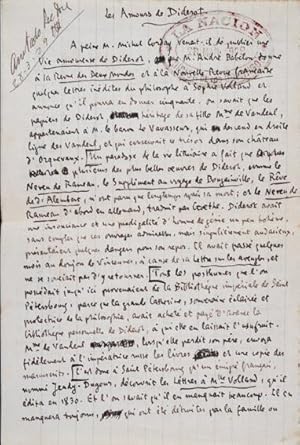 Les Amours de Diderot.
LA NACION
A peine M. Michel Corday venait-il de publier une
Vie amoureuse de Diderot, que M. André Babelon donne
à la Revue des Deux Mondes et à la Nouvelle Revue française
quelques lettres inédites du philosophe à Sophie Volland et
annonce qu'il pourra en donner cinquante. On savait que les
papiers de Diderot, héritage de sa fille Mme de Vandeul,
appartenaient à M. le baron Le Vavasseur, qui descend en droite
ligne des Vandeul, et qui conservait ce trésor dans son château
d'Orquevaux. Un paradoxe de la vie littéraire a fait que
plusieurs des plus belles œuvres de Diderot, comme le
Neveu de Rameau, le Supplément au voyage de Bougainville, le Rêve
de d'Alembert, n'ont paru que longtemps après sa mort; et le Neveu de
Rameau d'abord en allemand, traduit par Goethe. Diderot avait
une insouciance et une prodigalité d'homme de génie un peu bohème,
sans compter que ces ouvrages admirables, mais singulièrement audacieux,
présentaient quelques dangers pour son repos. Il avait passé quelques
mois au donjon de Vincennes, à cause de sa Lettre sur les aveugles, et
ne se souciait pas d'y retourner. Tous les posthumes que l'on
possédait jusqu'ici provenaient de la Bibliothèque impériale de Saint
Pétersbourg, parce que la grande Catherine, souveraine éclairée et
protectrice de la philosophie, avait acheté et payé d'avance la
bibliothèque personnelle de Diderot, à qui elle en laissait l'usufruit.
Mme de Vandeul, lorsqu'elle perdit son père, envoya
fidèlement à l'impératrice russe les livres et une copie des
manuscrits. C'est donc à Saint Pétersbourg qu'un émigré français,
nommé Jeudy-Dugour, découvrit les Lettres à Mlle Volland, qu'il
édita en 1830. Et l'on savait qu'il en manquait beaucoup. Il en
manquera toujours, qui ont été détruites par la famille ou